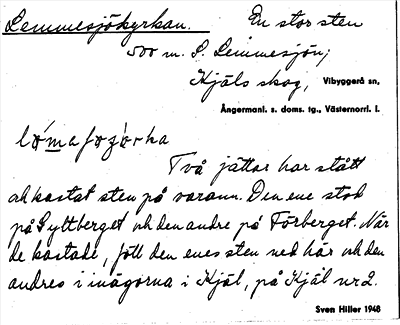 Lemmesjökyrkan. En stor sten
500 m. S. Lemmesjön;
Kjäls skog, Vibyggerå sn,
Ångermanl. s. doms. tg., Västernorrl. l.
Två jättar har stått
och kastat sten på varann. Den ene stod
på Gyltberget och den andre på Törberget. När
de kastade, föll den enes sten ned här och den
andres i inägorna i Kjäl, på Kjäl nr 2.
Sven Hiller 1948